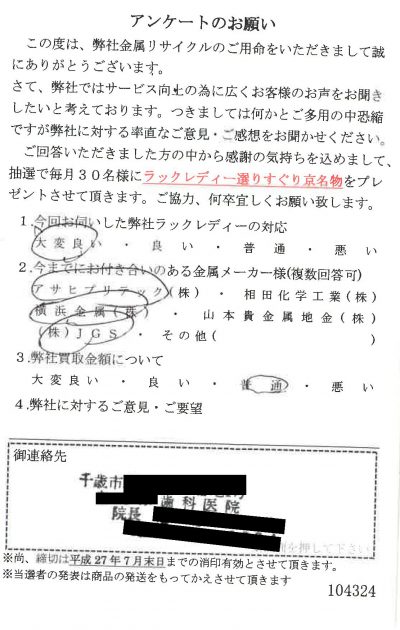 アンケートのお願い
この度は、弊社金属リサイクルのご用命をいただきまして誠
にありがとうございます。
さて、弊社ではサービス向上の為に広くお客様のお声をお聞き
したいと考えております。つきましては何かとご多用の中恐縮
ですが弊社に対する率直なご意見・ご感想をお聞かせください。
ご回答いただきました方の中から感謝の気持ちを込めまして、
抽選で毎月３０名様にラックレディー選りすぐり京名物をプレ
ゼントさせて頂きます。ご協力、何卒宜しくお願い致します。
１.今回お伺いした弊社ラックレディーの対応
大変良い ・ 良い ・ 普通 ・ 悪い
２.今までにお付き合いのある金属メーカー様(複数回答可)
アサヒプリテック(株) ・ 相田化学工業(株)
横浜金属(株) ・ 山本貴金属地金(株)
(株)ＪＧＳ ・ その他( )
３.弊社買取金額について
大変良い ・ 良い ・ 普通 ・ 悪い
４.弊社に対するご意見・ご要望
御連絡先
千歳市
歯科医院
院長
を押して下さい
※尚、締切は平成27年7月末日までの消印有効とさせて頂きます。
※当選者の発表は商品の発送をもってかえさせて頂きます
104324